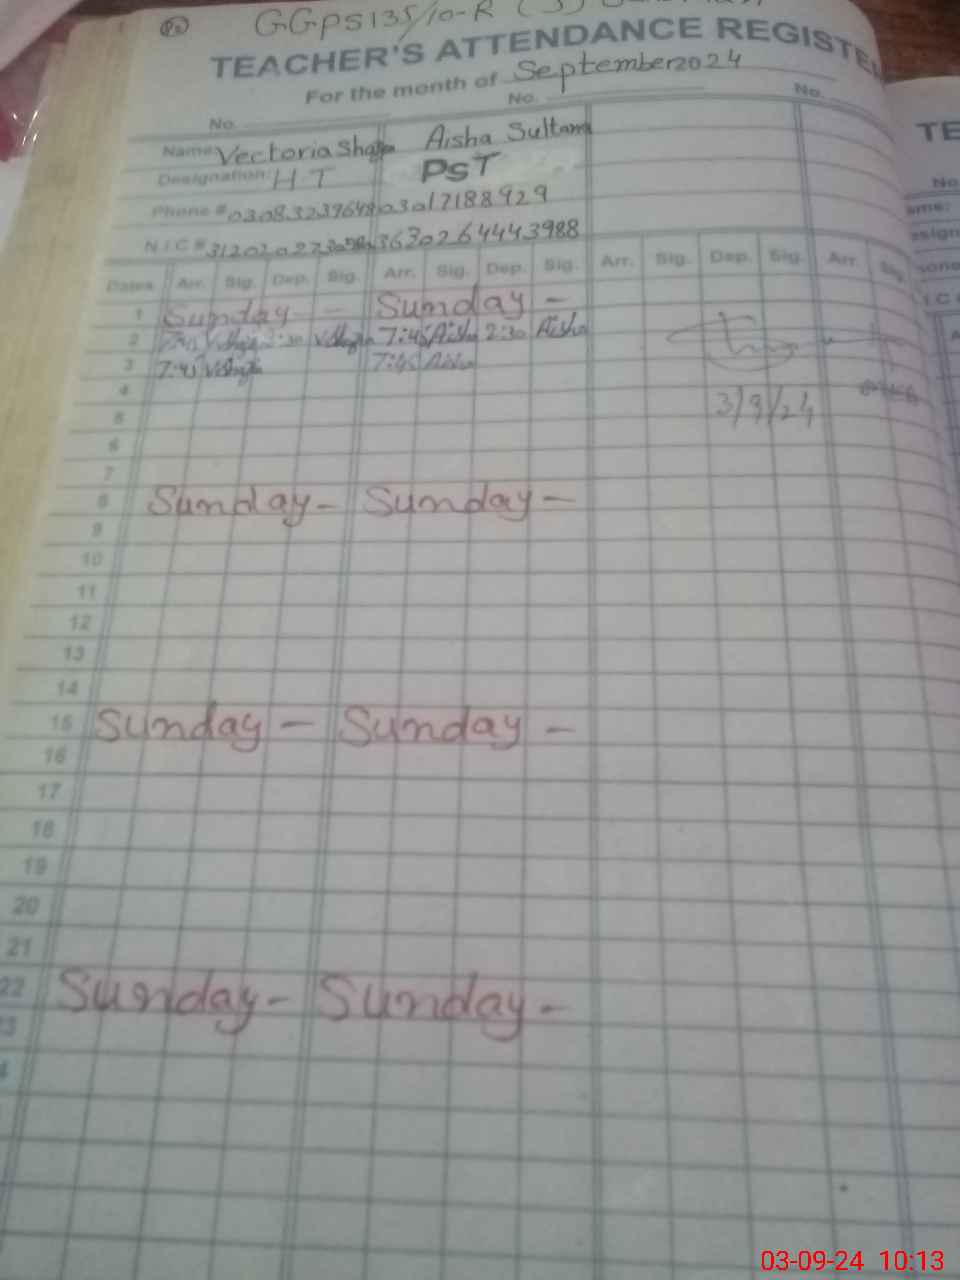 GGPS 135/10-R
TEACHER'S ATTENDANCE REGISTER
For the month of September 2024
No. No. No.
Name: Vectoria Aisha Sultana
Designation: HT PST
Phone # 03017188929
NIC # 3630264443988
Dates Arr. Sig. Dep. Sig. Arr. Sig. Dep. Sig. Arr. Sig. Dep. Sig. Arr. Sig.
1 Sunday - Sunday -
2 7:45 2:30 7:45 Aisha 2:30 Aisha
3 7:45 7:45 Aisha
4
3/9/24
5
6
7
8 Sunday - Sunday -
9
10
11
12
13
14
15 Sunday - Sunday -
16
17
18
19
20
21
22 Sunday - Sunday -
TE
No
ame:
esign
NIC
03-09-24 10:13